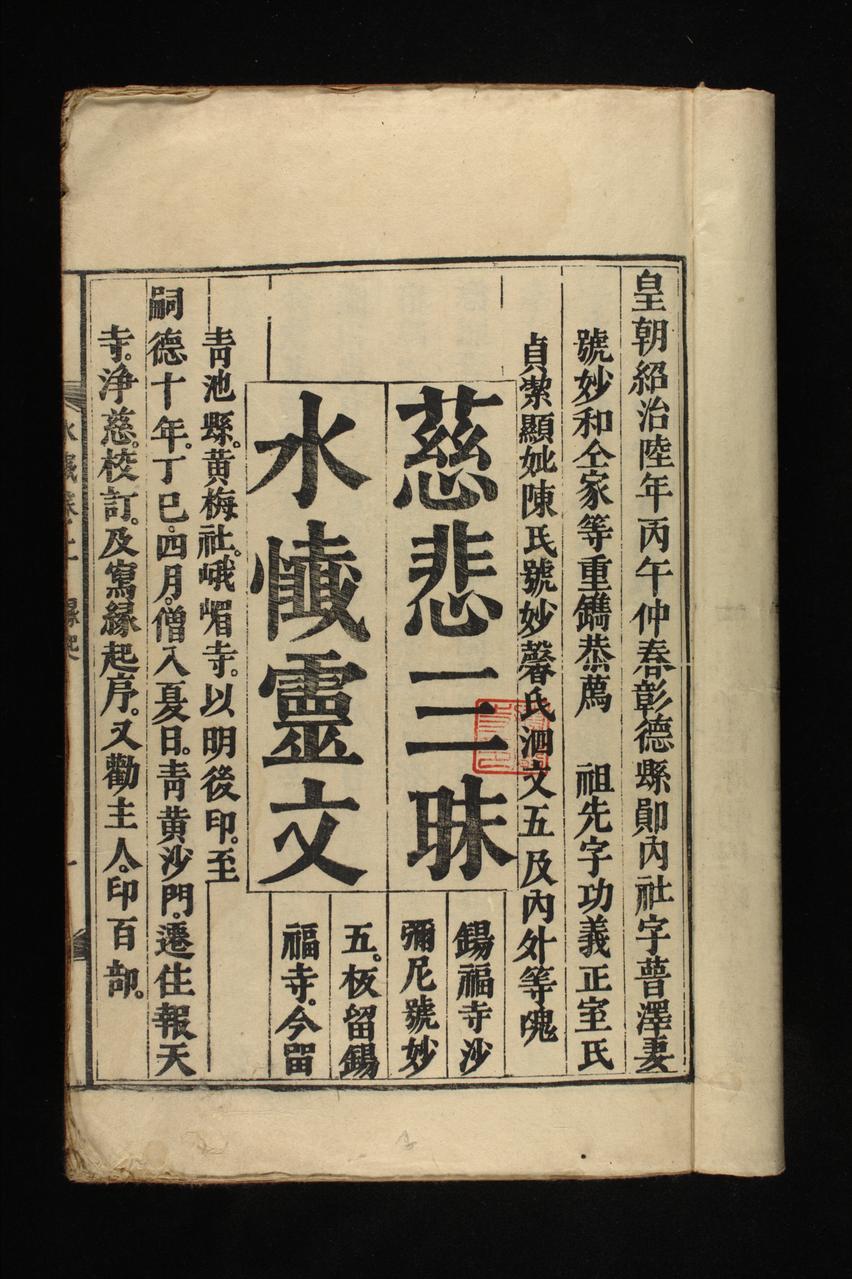 皇朝紹治陸年丙午仲春彰德縣郥內社字普澤妻
號妙和仝家等重鐫恭薦 祖先字功義正室氏
貞潔顯妣陳氏號妙馨氏泗文五及內外等魂
慈悲三昧
水懺靈文
錫福寺沙
彌尼號妙
五。板留錫
福寺。今留
青池縣。黄梅社。峨嵋寺。以明後印。至
嗣德十年。丁巳。四月。僧入夏日。青黄沙門。遷住報天
寺。淨慈。校訂。及寫緣起序。又勸主人。印百部。